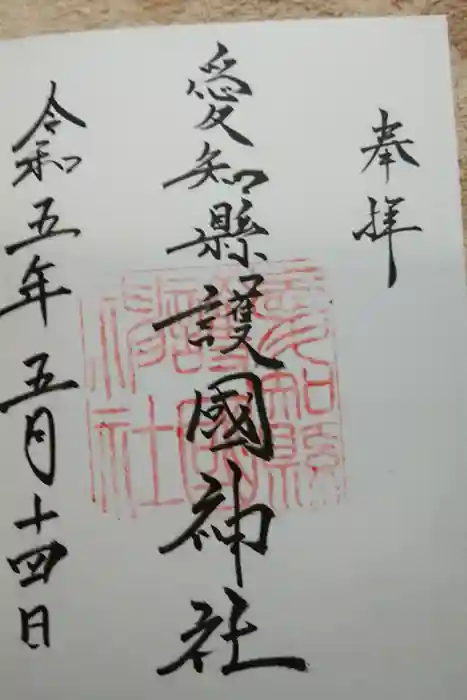 奉拝
愛知縣護國神社
愛知縣護國神社
令和五年五月十四日